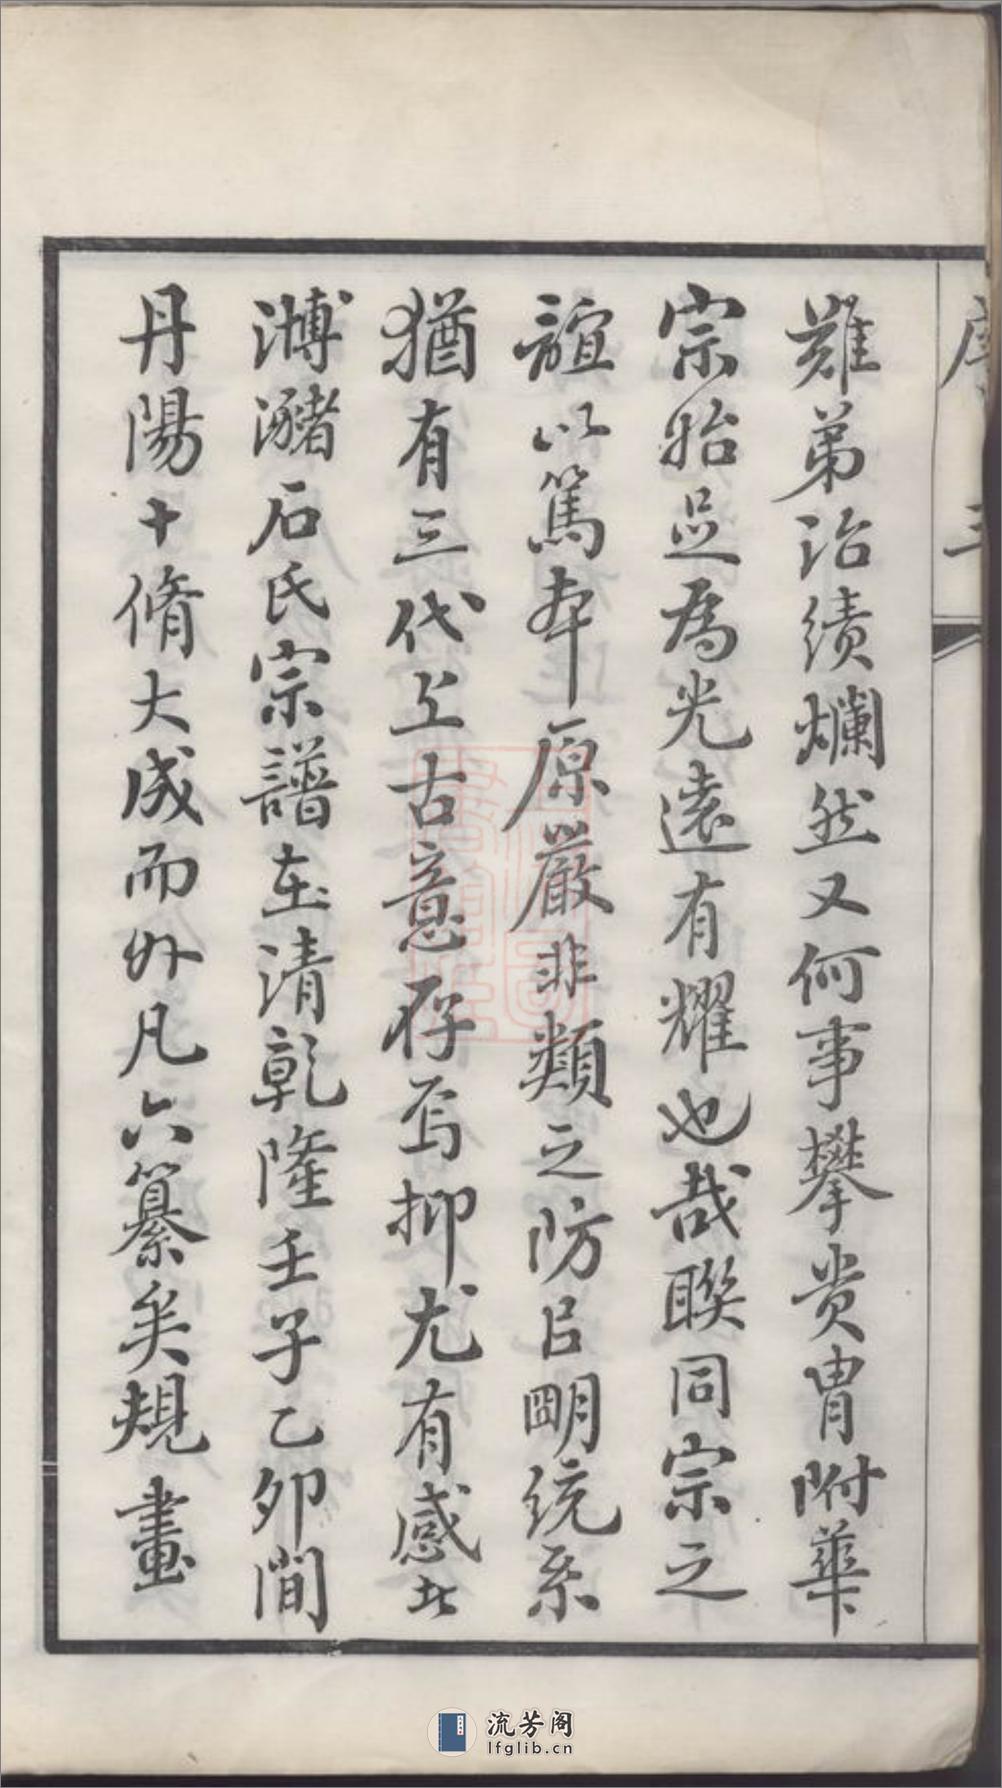 難弟治績爛然又何事攀贵胄附華
宗始足為光遠有耀也哉聯同宗之
誼以篤本原嚴非類之防㠯朙统系
猶有三代上古意存焉抑尤有感比
溥瀦石氏宗譜在清乾隆壬子乙卯間
丹陽十脩大成而外凡六纂矣規畫
序 三
流芳阁
lfglib.cn